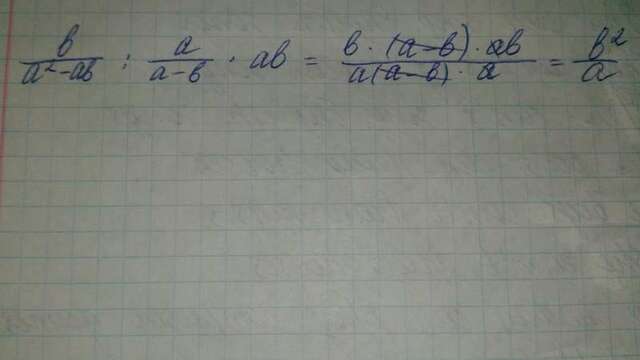 b/(a²-ab) : a/(a-b) · ab = (b · (a-b) · ab)/(a(a-b) · a) = b²/a